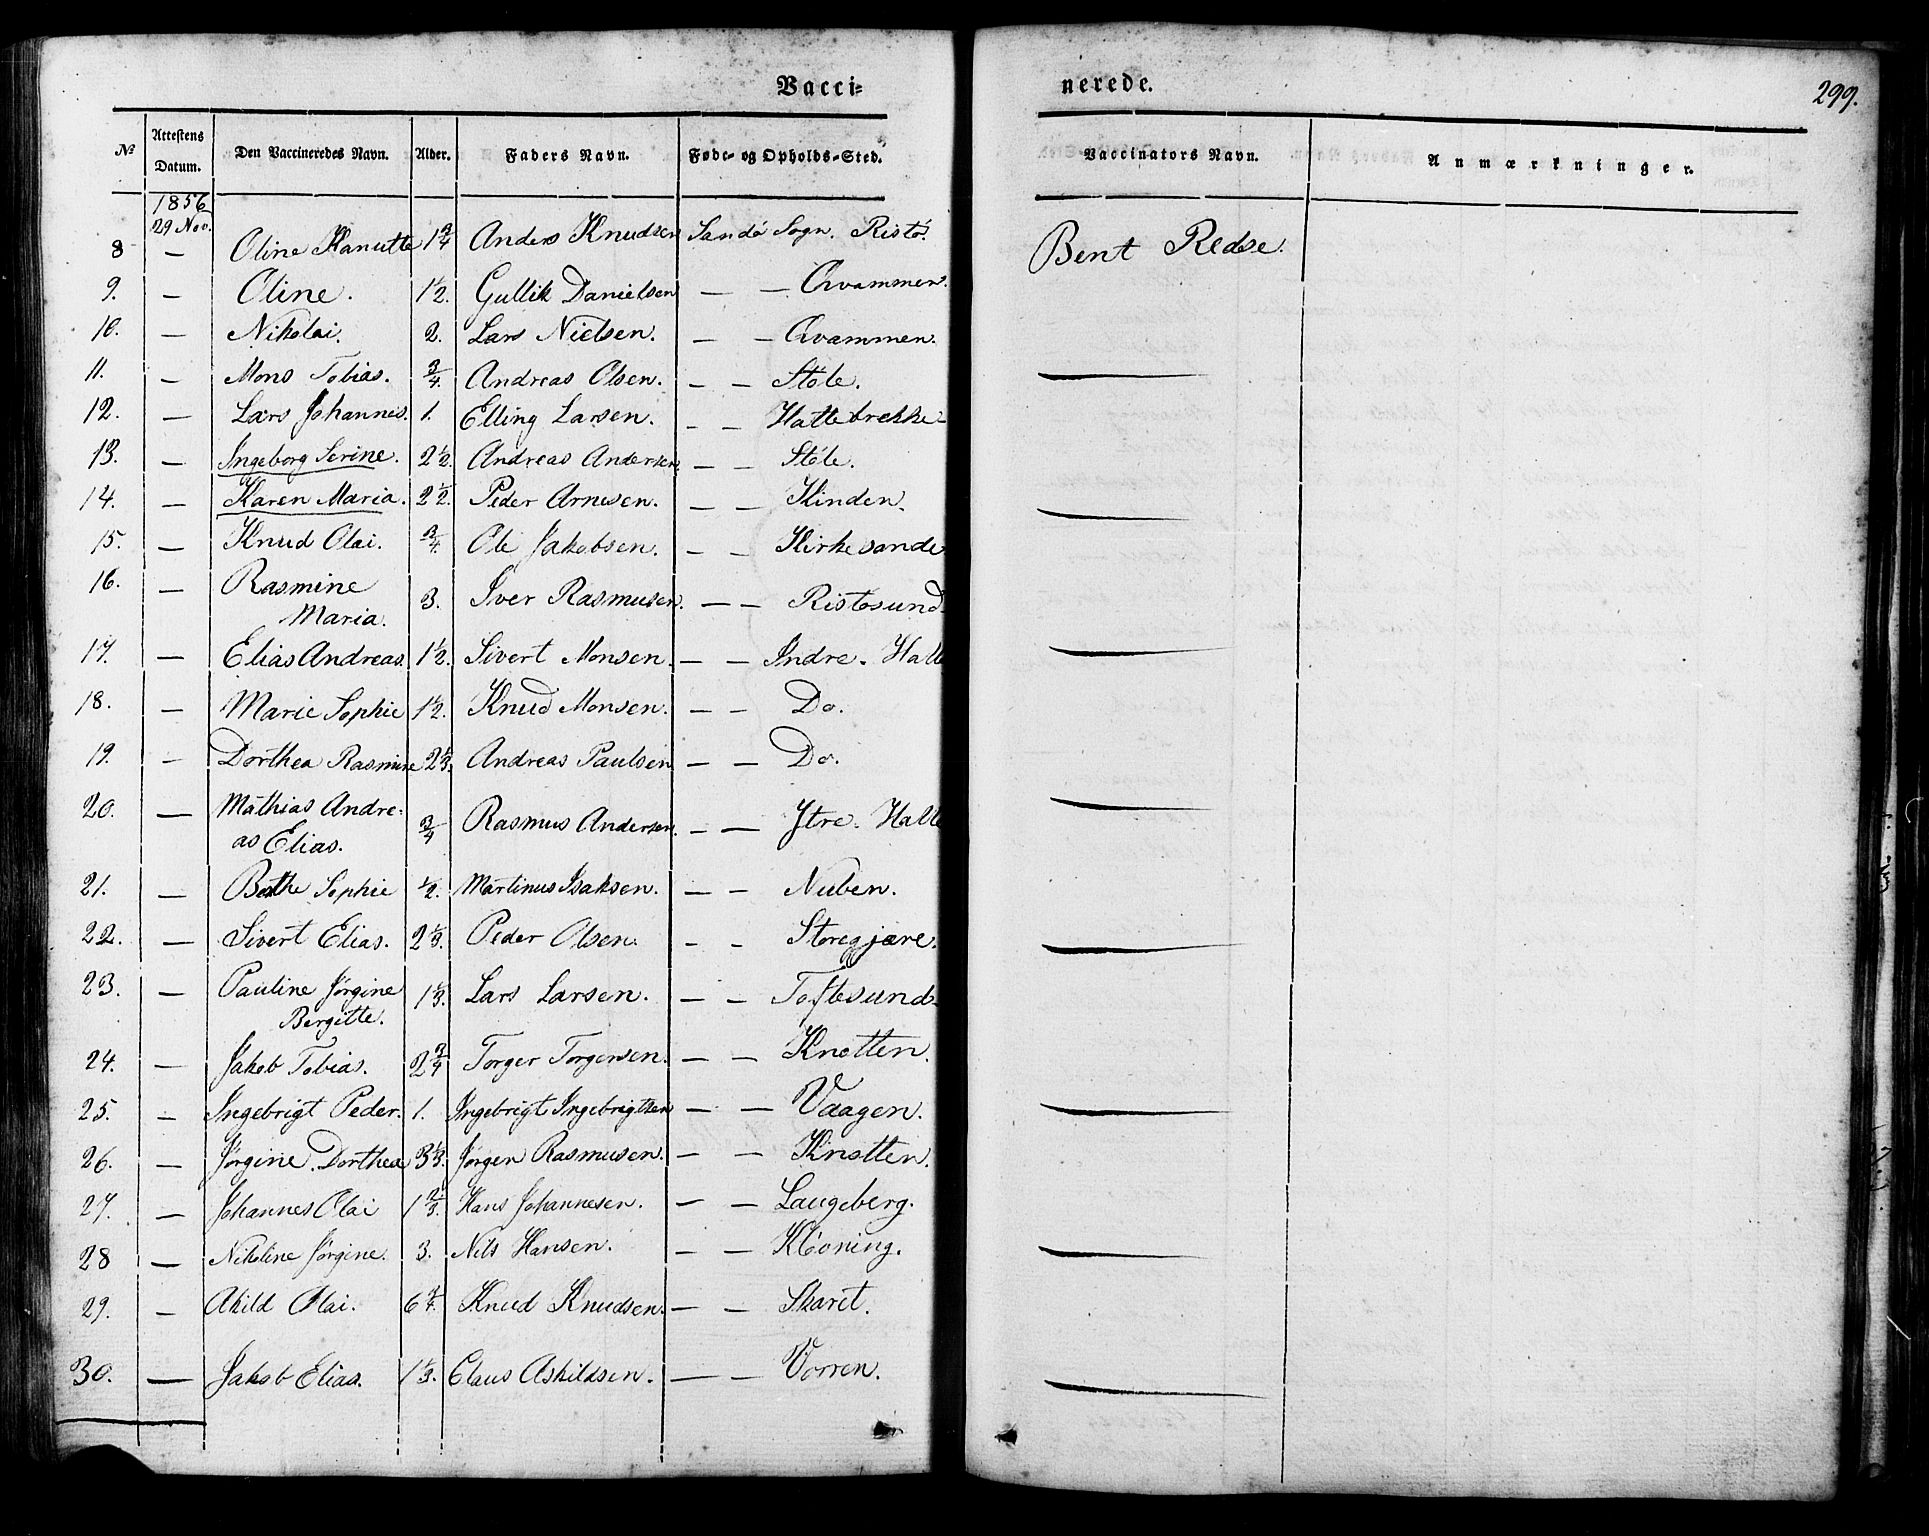 Vacci=
nerede.
299.
No Attestens Datum. Den Vaccineredes Navn. Alder. Faders Navn. Føde- og Opholds-Sted. Vaccinators Navn. Anmærkninger.
1856
8 29 Nov. — Oline Kanutte 1 3/4 Anders Knudsen Sandø Sogn. Ristø. Bent Redse.
9. — Oline. 1 1/2. Gullik Danielsen — — Qvammen.
10. — Nikolai. 2. Lars Nielsen. — — Qvammen.
11. — Mons Tobias. 3/4. Andreas Olsen. — — Støle.
12. — Lars Johannes. 1. Elling Larsen. — — Hattebrekke
13. — Ingeborg Serine. 2 1/2. Andreas Andersen. — — Støle.
14. — Karen Maria. 2 1/2. Peder Arnesen. — — Kinden.
15. — Knud Olai. 3/4. Ole Jakobsen. — — Kirkesande
16. — Rasmine
Maria. 3. Iver Rasmusen. — — Ristosund
17. — Elias Andreas. 1 1/2. Sivert Monsen. — — Indre. Halle
18. — Marie Sophie 1 1/2. Knud Monsen. — — Do.
19. — Dorthea Rasmine 2 1/3. Andreas Paulsen — — Do.
20. — Mathias Andre=
as Elias. 3/4 Rasmus Andersen. — — Ytre. Halle
21. — Bothe Sophie 1/2. Martinus Isaksen. — — Nuben.
22. — Sivert Elias. 2 1/3. Peder Olsen. — — Storegjære.
23. — Pauline Jørgine
Bergitte. 1 1/3. Lars Larsen. — — Toftesund
24. — Jakob Tobias. 2 3/4 Torger Torgersen. — — Knotten.
25. — Ingebrigt Peder. 1. Ingebrigt Ingebrigtsen — — Vaagen.
26. — Jørgine Dorthea 3 1/3. Jørgen Rasmusen. — — Knotten.
27. — Johannes Olai 1 2/3. Hans Johannesen. — — Laugeberg.
28 — Nikoline Jørgine. 3. Nils Hansen. — — Kløvning.
29. — Akild Olai. 6 Knud Knudsen. — — Skaret.
30. — Jakob Elias. 1 1/3. Claus Askildsen. — — Vorren.